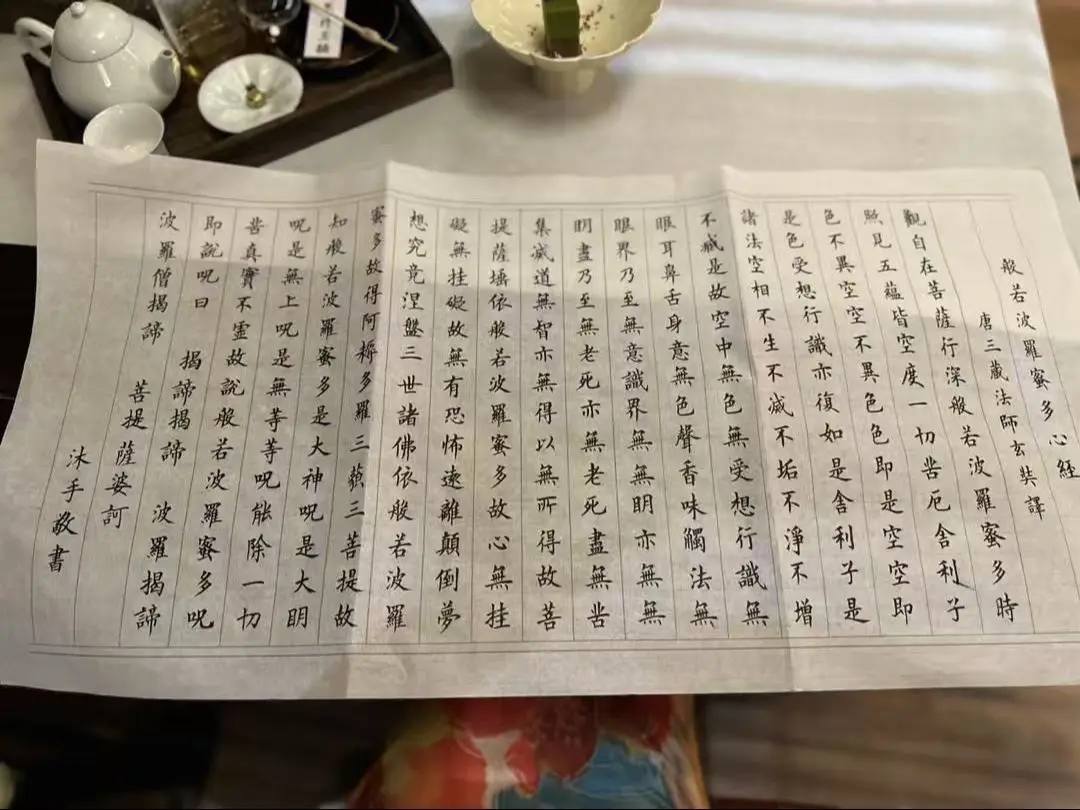 般若波羅蜜多心経
唐三蔵法師玄奘譯
觀自在菩薩行深般若波羅蜜多時
照見五蘊皆空度一切苦厄舍利子
色不異空空不異色色即是空空即
是色受想行識亦復如是舍利子是
諸法空相不生不滅不垢不淨不增
不減是故空中無色無受想行識無
眼耳鼻舌身意無色聲香味觸法無
眼界乃至無意識界無無明亦無無
明盡乃至無老死亦無老死盡無苦
集滅道無智亦無得以無所得故菩
提薩埵依般若波羅蜜多故心無挂
礙無挂礙故無有恐怖遠離顛倒夢
想究竟涅盤三世諸佛依般若波羅
蜜多故得阿耨多羅三藐三菩提故
知般若波羅蜜多是大神呪是大明
呪是無上呪是無等等呪能除一切
苦真實不虛故說般若波羅蜜多呪
即說呪曰 揭諦揭諦 波羅揭諦
波羅僧揭諦 菩提 薩婆訶
沐手敬書